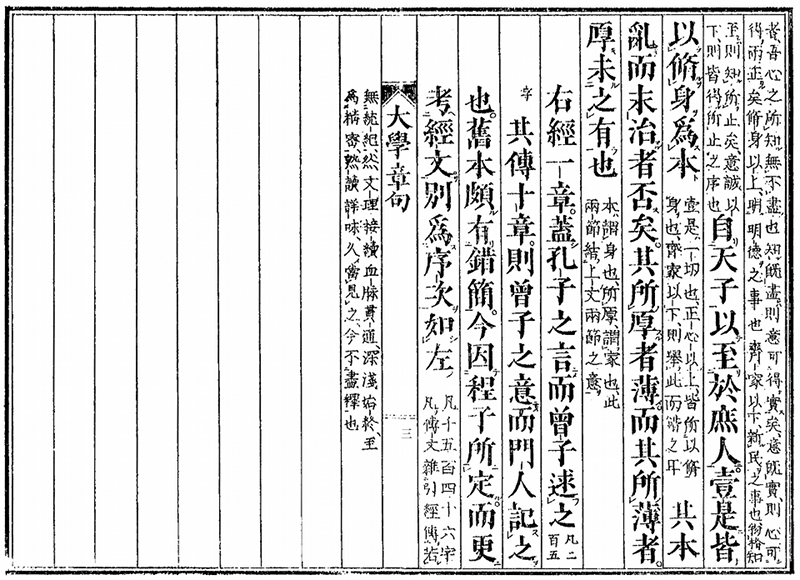 者吾心之所知無不盡也知既盡則意可得實矣意既實則心可
得而正矣脩身以上明明德之事也齊家以下新民之事也物格知
至則知所止矣意誠以
下則皆得所止之序也
自天子以至於庶人壹是皆
以脩身爲本
壹是一切也正心以上皆所以脩
身也齊家以下則舉此而措之耳
其本
亂而末治者否矣。其所厚者薄而其所薄者
厚未之有也
本謂身也所厚謂家也此
兩節結上文兩節之意
右經一章。蓋孔子之言而曾子述之
凡二
百五
字
其傳十章。則曾子之意而門人記之
也。舊本頗有錯簡。今因程子所定。而更
考經文別爲序次如左
凡千五百四十六字
凡傳文雜引經傳若
大學章句
三
無統紀然文理接續血脉貫通深淺始終至
爲精密熟讀詳味久當見之今不盡釋也